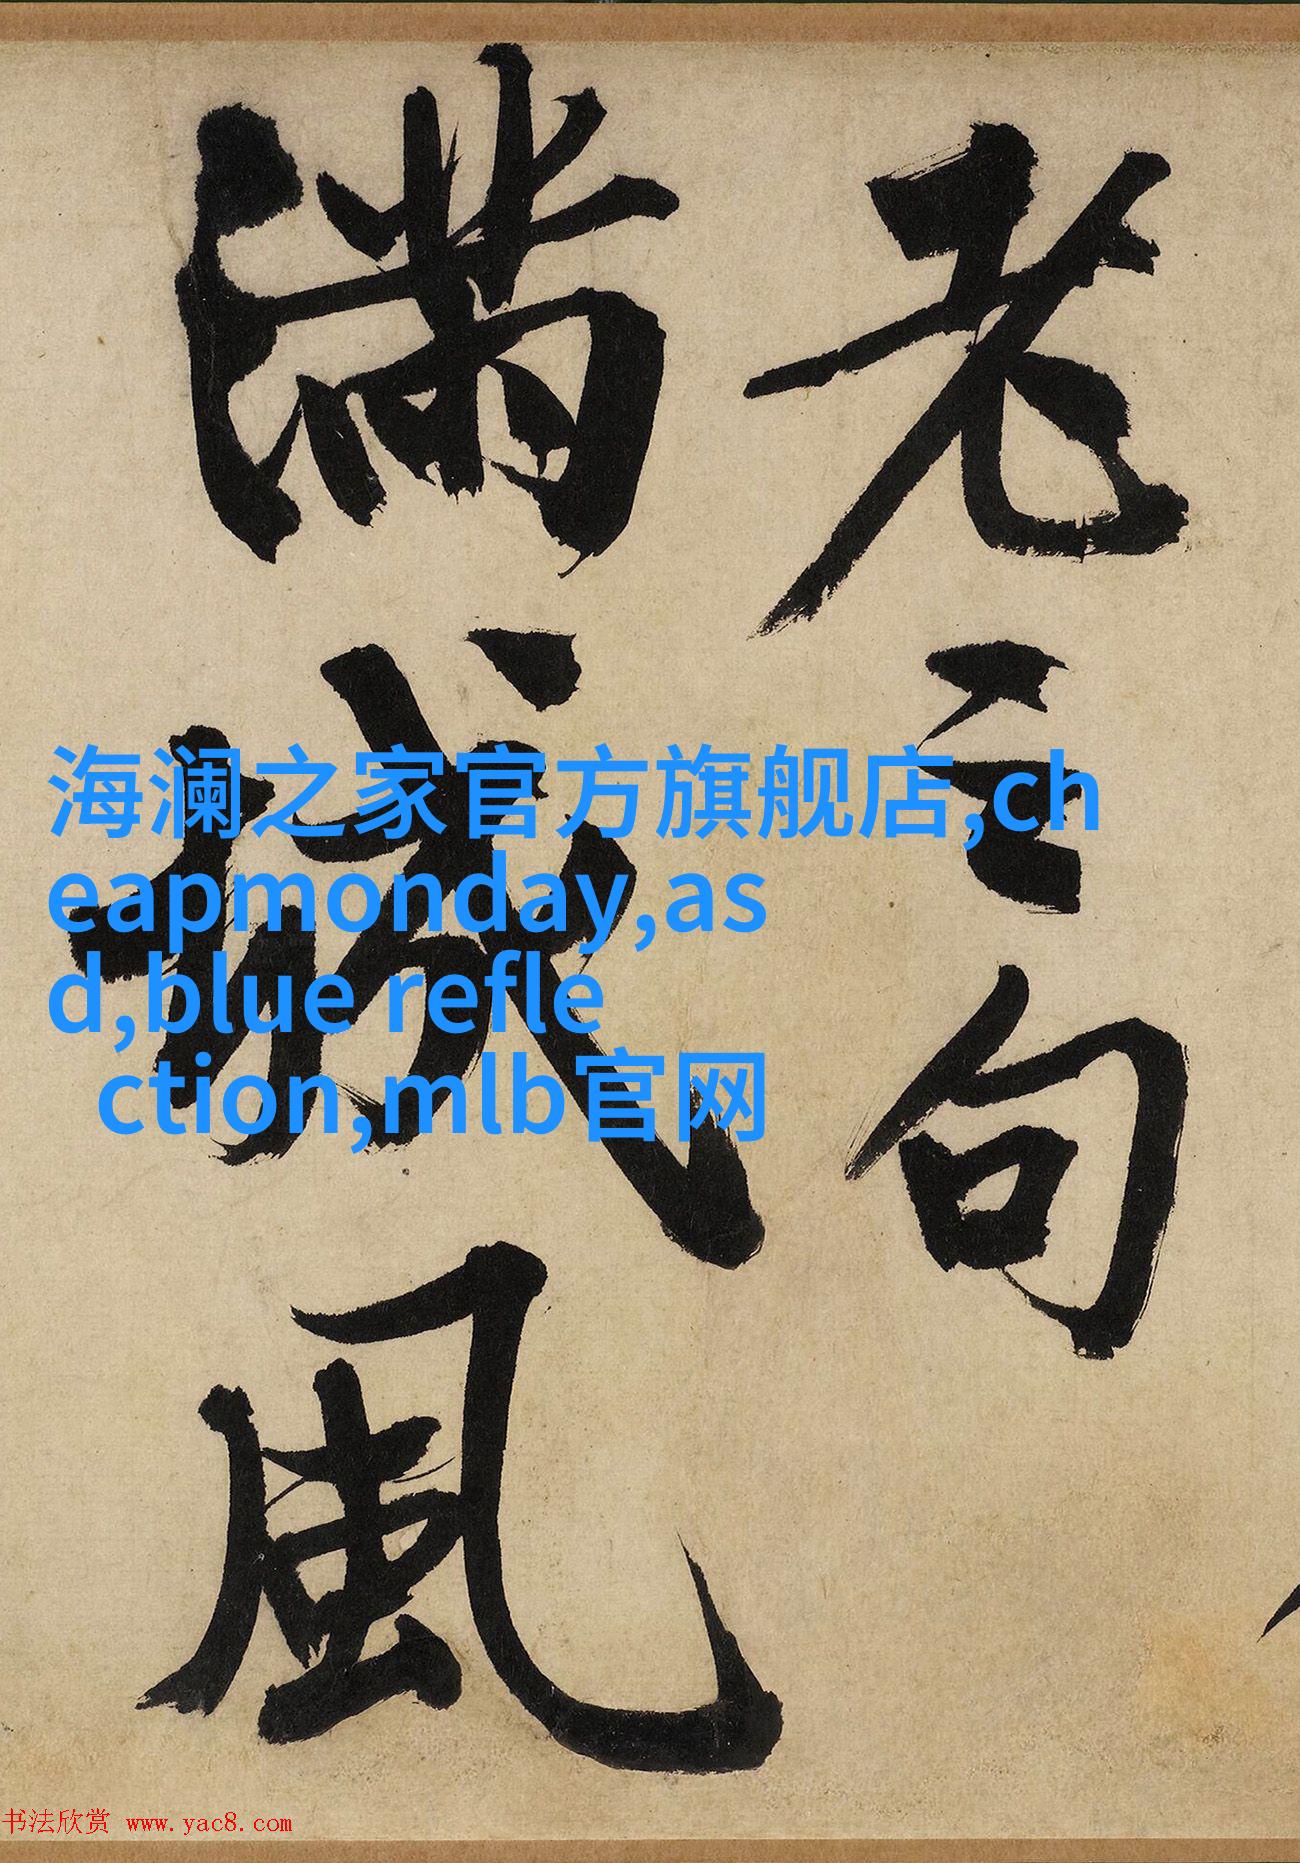 老之句
满城风
海澜之家官方旗舰店,ch
eapmonday,as
d,blue refle
ction,mlb官网
书法欣赏 www.yac8.com